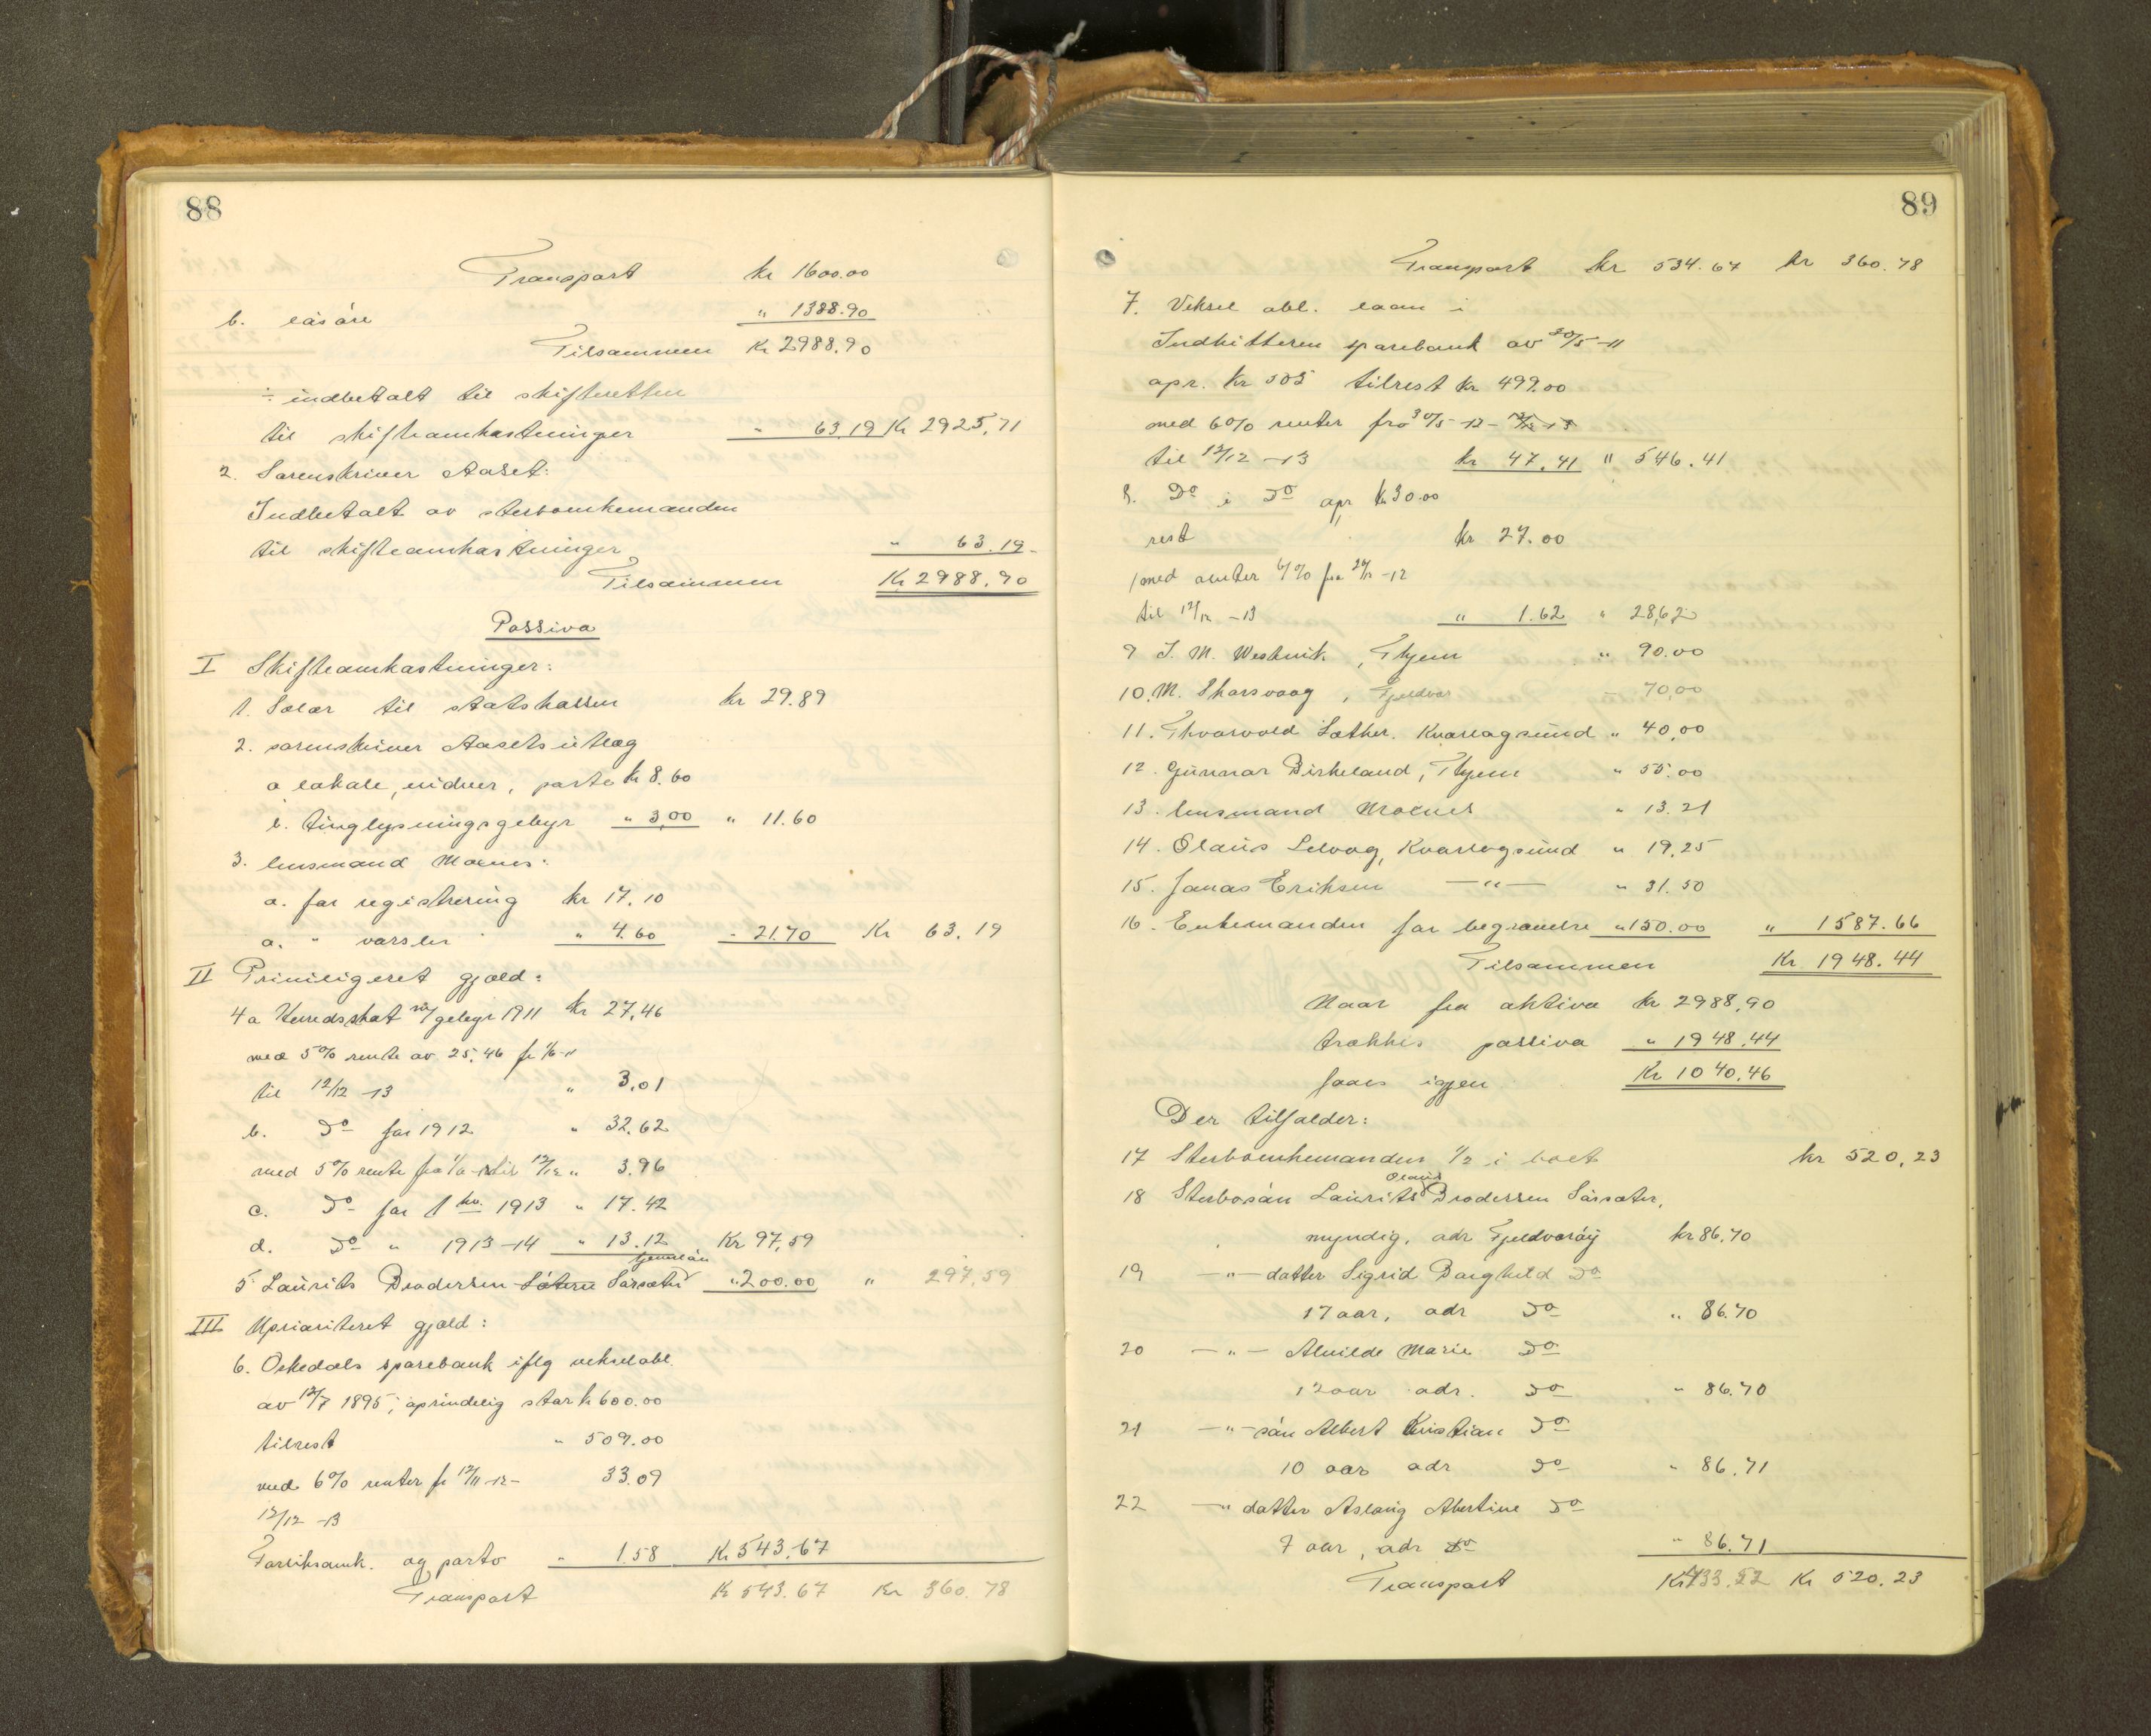 88
Transport kr 1600.00
b. løsøre " 1388.90
Tilsammen Kr 2988.90
÷ indbetalt til skifteretten
til skifteomkostninger " 63.19 Kr 2925,71
2. Sorenskriver Aaset:
Indbetalt av sterboenkemanden
til skifteomkostninger " 63.19
Tilsammen Kr 2988,90
Passiva
I Skifteomkostninger:
1. Salær til statskassen kr 29.89
2. sorenskriver Aasets utlæg
a lokale, vidner, porto kr 8.60
b. tinglysningsgebyr " 3,00 " 11.60
3. lensmand Moenes:
a. for registrering kr 17.10
a. " varsler " 4.60 - 21.70 Kr 63.19
II Priviligeret gjæld:
4a Herredsskat m/gebyr 1911 kr 27,46
med 5% rente av 25,46 fr 1/6-11
til 12/12 -13 " 3,01
b. Do for 1912 " 32.62
med 5% rente fra til 12/12 " 3.96
c. Do for 1 hv. 1913 " 17.42
d. Do " 1913-14 " 13.12 Kr 97,59
tjenerløn
5 Laurits Brodersen Sætern Sørsæter " 200.00 " 297,59
III Uprioriteret gjæld:
6. Orkedals sparebank iflg vekselobl.
av 12/7 1895, oprindelig stor kr 600.00
tilrest " 509.00
med 6% renter fr 12/11-12-
33.09
12/12 -13
Forliksomk. og porto " 1.58 Kr 543.67
Transport Kr 543.67 Kr 360.78
89
Transport kr 534.67 kr 360.78
7. Veksel obl. laan i
Indhitteren sparebank av 30/5-11
opr. kr 505 tilrest kr 499.00
med 6% renter fra 30/5-12-
til 12/12 -13 kr 47.41 " 546.41
8. Do i Do opr kr 30.00
rest kr 27.00
med renter 6% fra -12
til 12/12 -13 " 1.62 " 28,62
9 J. M. Westvik, Thjem " 90.00
10. M. Skarsvaag, Fjeldvær - 70,00
11. Thorvald Sæther. Kvarlagsund " 40,00
12. Gunnar Birkeland, Thjem " 55.00
13. lensmand Moenes " 13.21
14. Olaus Selvog, Kvarlogsund " 19,25
15. Jonas Eriksen —"— " 31.50
16. Enkemanden for begravelse " 150.00 " 1587.66
Tilsammen Kr 1948.44
Naar fra aktiva kr 2988,90
trækkes passiva " 1948.44
faaes igjen Kr 1040,46
Der tilfalder:
17 Sterboenkemanden 1/2 i boet kr 520,23
Olaus
18 Sterbosøn Laurits Brodersen Sørsæter,
myndig, adr Fjeldværøy kr 86,70
19 —"— datter Sigrid Borghild Do
17 aar, adr Do " 86.70
20 —"— Alvilde Marie Do
12 aar adr. Do " 86.70
21 —"— søn Albert Kristian Do
10 aar adr Do " 86.71
22 —" datter Aslaug Abertine Do
7 aar, adr Do " 86.71
Transport Kr 433.52 Kr 520.23